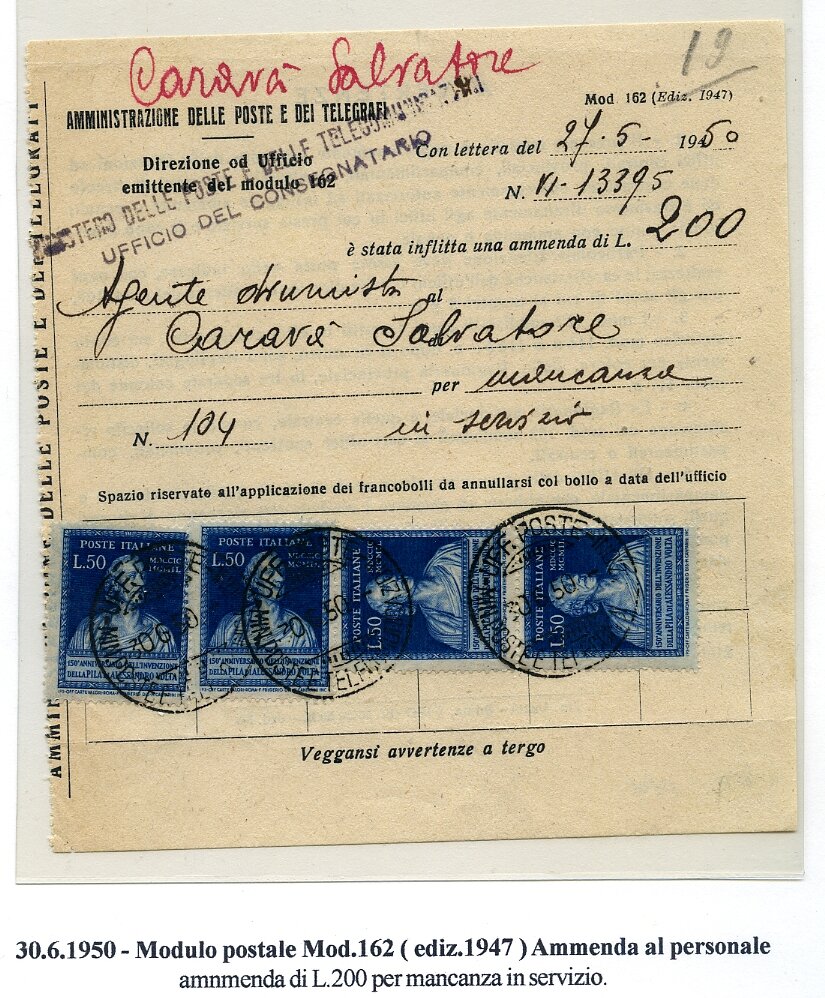 Caravà Salvatore
19
AMMINISTRAZIONE DELLE POSTE E DEI TELEGRAFI
Mod. 162 (Ediz. 1947)
MINISTERO DELLE POSTE E DELLE TELECOMUNICAZIONI
UFFICIO DEL CONSEGNATARIO
Direzione od Ufficio
emittente del modulo 162
Con lettera del 27-5- 1950
N. VI-13395
è stata inflitta una ammenda di L. 200
Agente al
Caravà Salvatore
per mancanza
N. 104 in servizio
Spazio riservato all'applicazione dei francobolli da annullarsi col bollo a data dell'ufficio
POSTE ITALIANE
L.50
MDCCIC
MCMIL
150° ANNIVERSARIO DELL'INVENZIONE
DELLA PILA DI ALESSANDRO VOLTA
POSTE ITALIANE
L.50
MDCCIC
MCMIL
150° ANNIVERSARIO DELL'INVENZIONE
DELLA PILA DI ALESSANDRO VOLTA
POSTE ITALIANE
L.50
MDCCIC
MCMIL
POSTE ITALIANE
L.50
150° ANNIVERSARIO DELL'INVENZIONE
DELLA PILA DI ALESSANDRO VOLTA
Veggansi avvertenze a tergo
30.6.1950 - Modulo postale Mod.162 ( ediz.1947 ) Ammenda al personale
amnmenda di L.200 per mancanza in servizio.